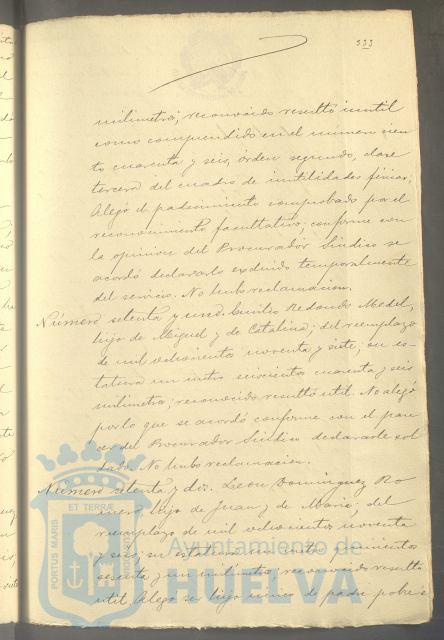 533
milimetros; reconocido resultó inutil
como comprendido en el número cien-
to cuarenta y seis, órden segundo, clase
tercera del cuadro de inutilidades físicas;
Alegó el padecimiento comprobado por el
reconocimiento facultativo; conforme con
la opinion del Procurador Síndico se
acordó declararlo excluido temporalmente
del servicio. No hubo reclamacion.
Número setenta y uno. Emilio Redondo Medel,
hijo de Miguel y de Catalina; del reemplazo
de mil ochocientos noventa y siete; su es-
tatura un metro seiscientos cuarenta y seis
milimetros; reconocido resultó util. No alegó
por lo que se acordó conforme con el pare-
cer del Procurador Síndico declararle sol
dado. No hubo reclamacion.
Número setenta y dos. Leon Dominguez Ro
mero, hijo de Juan y de María, del
reemplazo de mil ochocientos noventa
y seis; su estatura un metro quinientos
sesenta y un milimetros, reconocido resultó
util. Alegó ser hijo único de padre pobre é
PORTUS MARIS
ET TERRÆ
CUSTODIA
Ayuntamiento de
HUELVA